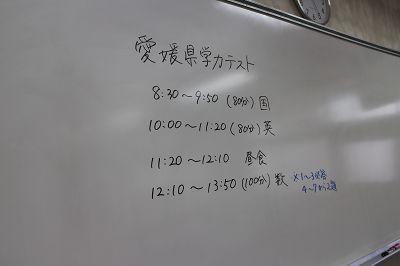 愛媛県学力テスト
8:30～9:50 (80分) 国
10:00～11:20 (80分) 英
11:20～12:10 昼食
12:10～13:50 (100分) 数 ※1～3必答
4～7から2題